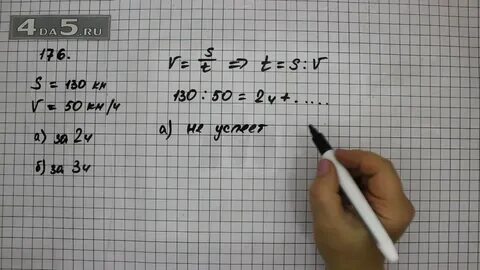 4DA5.RU
176.
S = 130 км
V = 50 км/ч
а) за 2ч
б) за 3ч
V = S/t ⇒ t = S : V
130 : 50 = 2ч + .....
а) не успеет